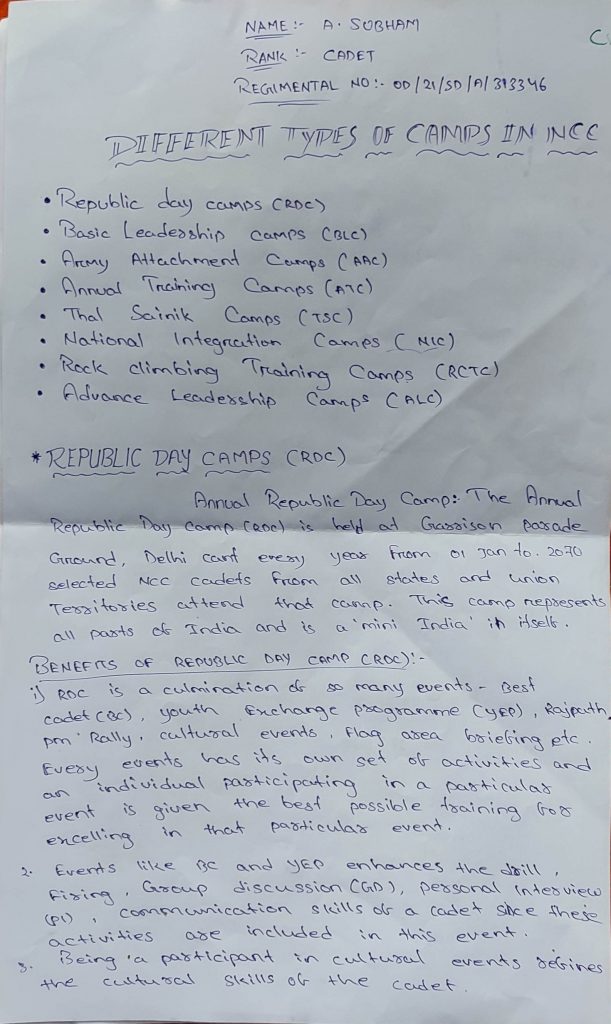 NAME :- A. SUBHAM
C
RANK :- CADET
REGIMENTAL NO :- OD/21/SD/A/313346
DIFFERENT TYPES OF CAMPS IN NCC
• Republic day camps (RDC)
• Basic Leadership camps (BLC)
• Army Attachment Camps (AAC)
• Annual Training Camps (ATC)
• Thal Sainik Camps (TSC)
• National Integration Camps (NIC)
• Rock climbing Training Camps (RCTC)
• Advance Leadership Camps (ALC)
* REPUBLIC DAY CAMPS (RDC)
Annual Republic Day Camp: The Annual
Republic Day Camp (RDC) is held at Garrison parade
Ground, Delhi cant every year from 01 Jan to. 2070
selected NCC cadets from all states and union
Territories attend that camp. This camp represents
all parts of India and is a 'mini India' in itself.
BENEFITS OF REPUBLIC DAY CAMP (RDC):-
i) RDC is a culmination of so many events - Best
cadet (BC), youth Exchange programme (YEP), Rajpath,
pm' Rally, cultural events, flag area briefing etc.
Every events has its own set of activities and
an individual participating in a particular
event is given the best possible training for
excelling in that particular event.
2. Events like BC and YEP enhances the drill,
Firing, Group discussion (GD), personal interview
(PI), communication skills of a cadet since these
activities are included in this event.
3. Being a participant in cultural events refines
the cultural skills of the cadet.